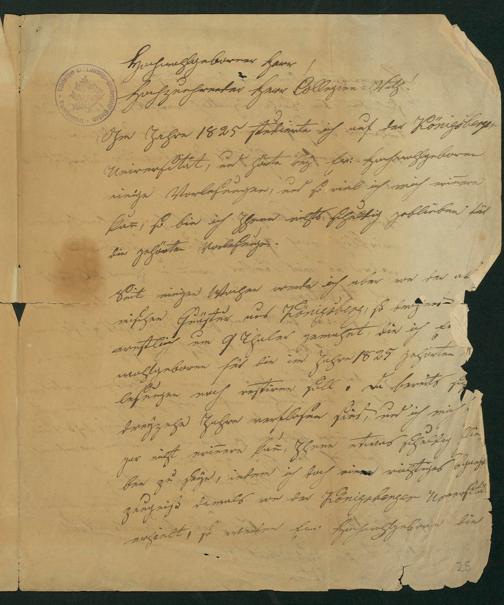 Hochwohlgeborner Herr!
Hochzuehrender Herr Collegien-Rath!
Im Jahre 1825 studierte ich auf der Königsberger
Universität, und hörte bei Hochwohlgeboren
einige Vorlesungen, und so viel ich mich erinnern
kann, so bin ich Ihnen nichts schuldig geblieben für
die gehörten Vorlesungen.
Seit einigen Wochen werde ich aber von dem
Quästor aus Königsberg, so
um 9 Thaler gemahnt die ich
wohlgeboren für die im Jahre 1825 gehörten
lesungen noch restiren soll. Da bereits
dreyzehn Jahre verflossen sind, und ich mich
gar nicht erinnern kann, Ihnen etwas schuldig
ben zu seyn, indem ich doch ein richtiges
zeugniß damals von der Königsberger Universität
erhielt, so werden Hochwohlgeboren die
25